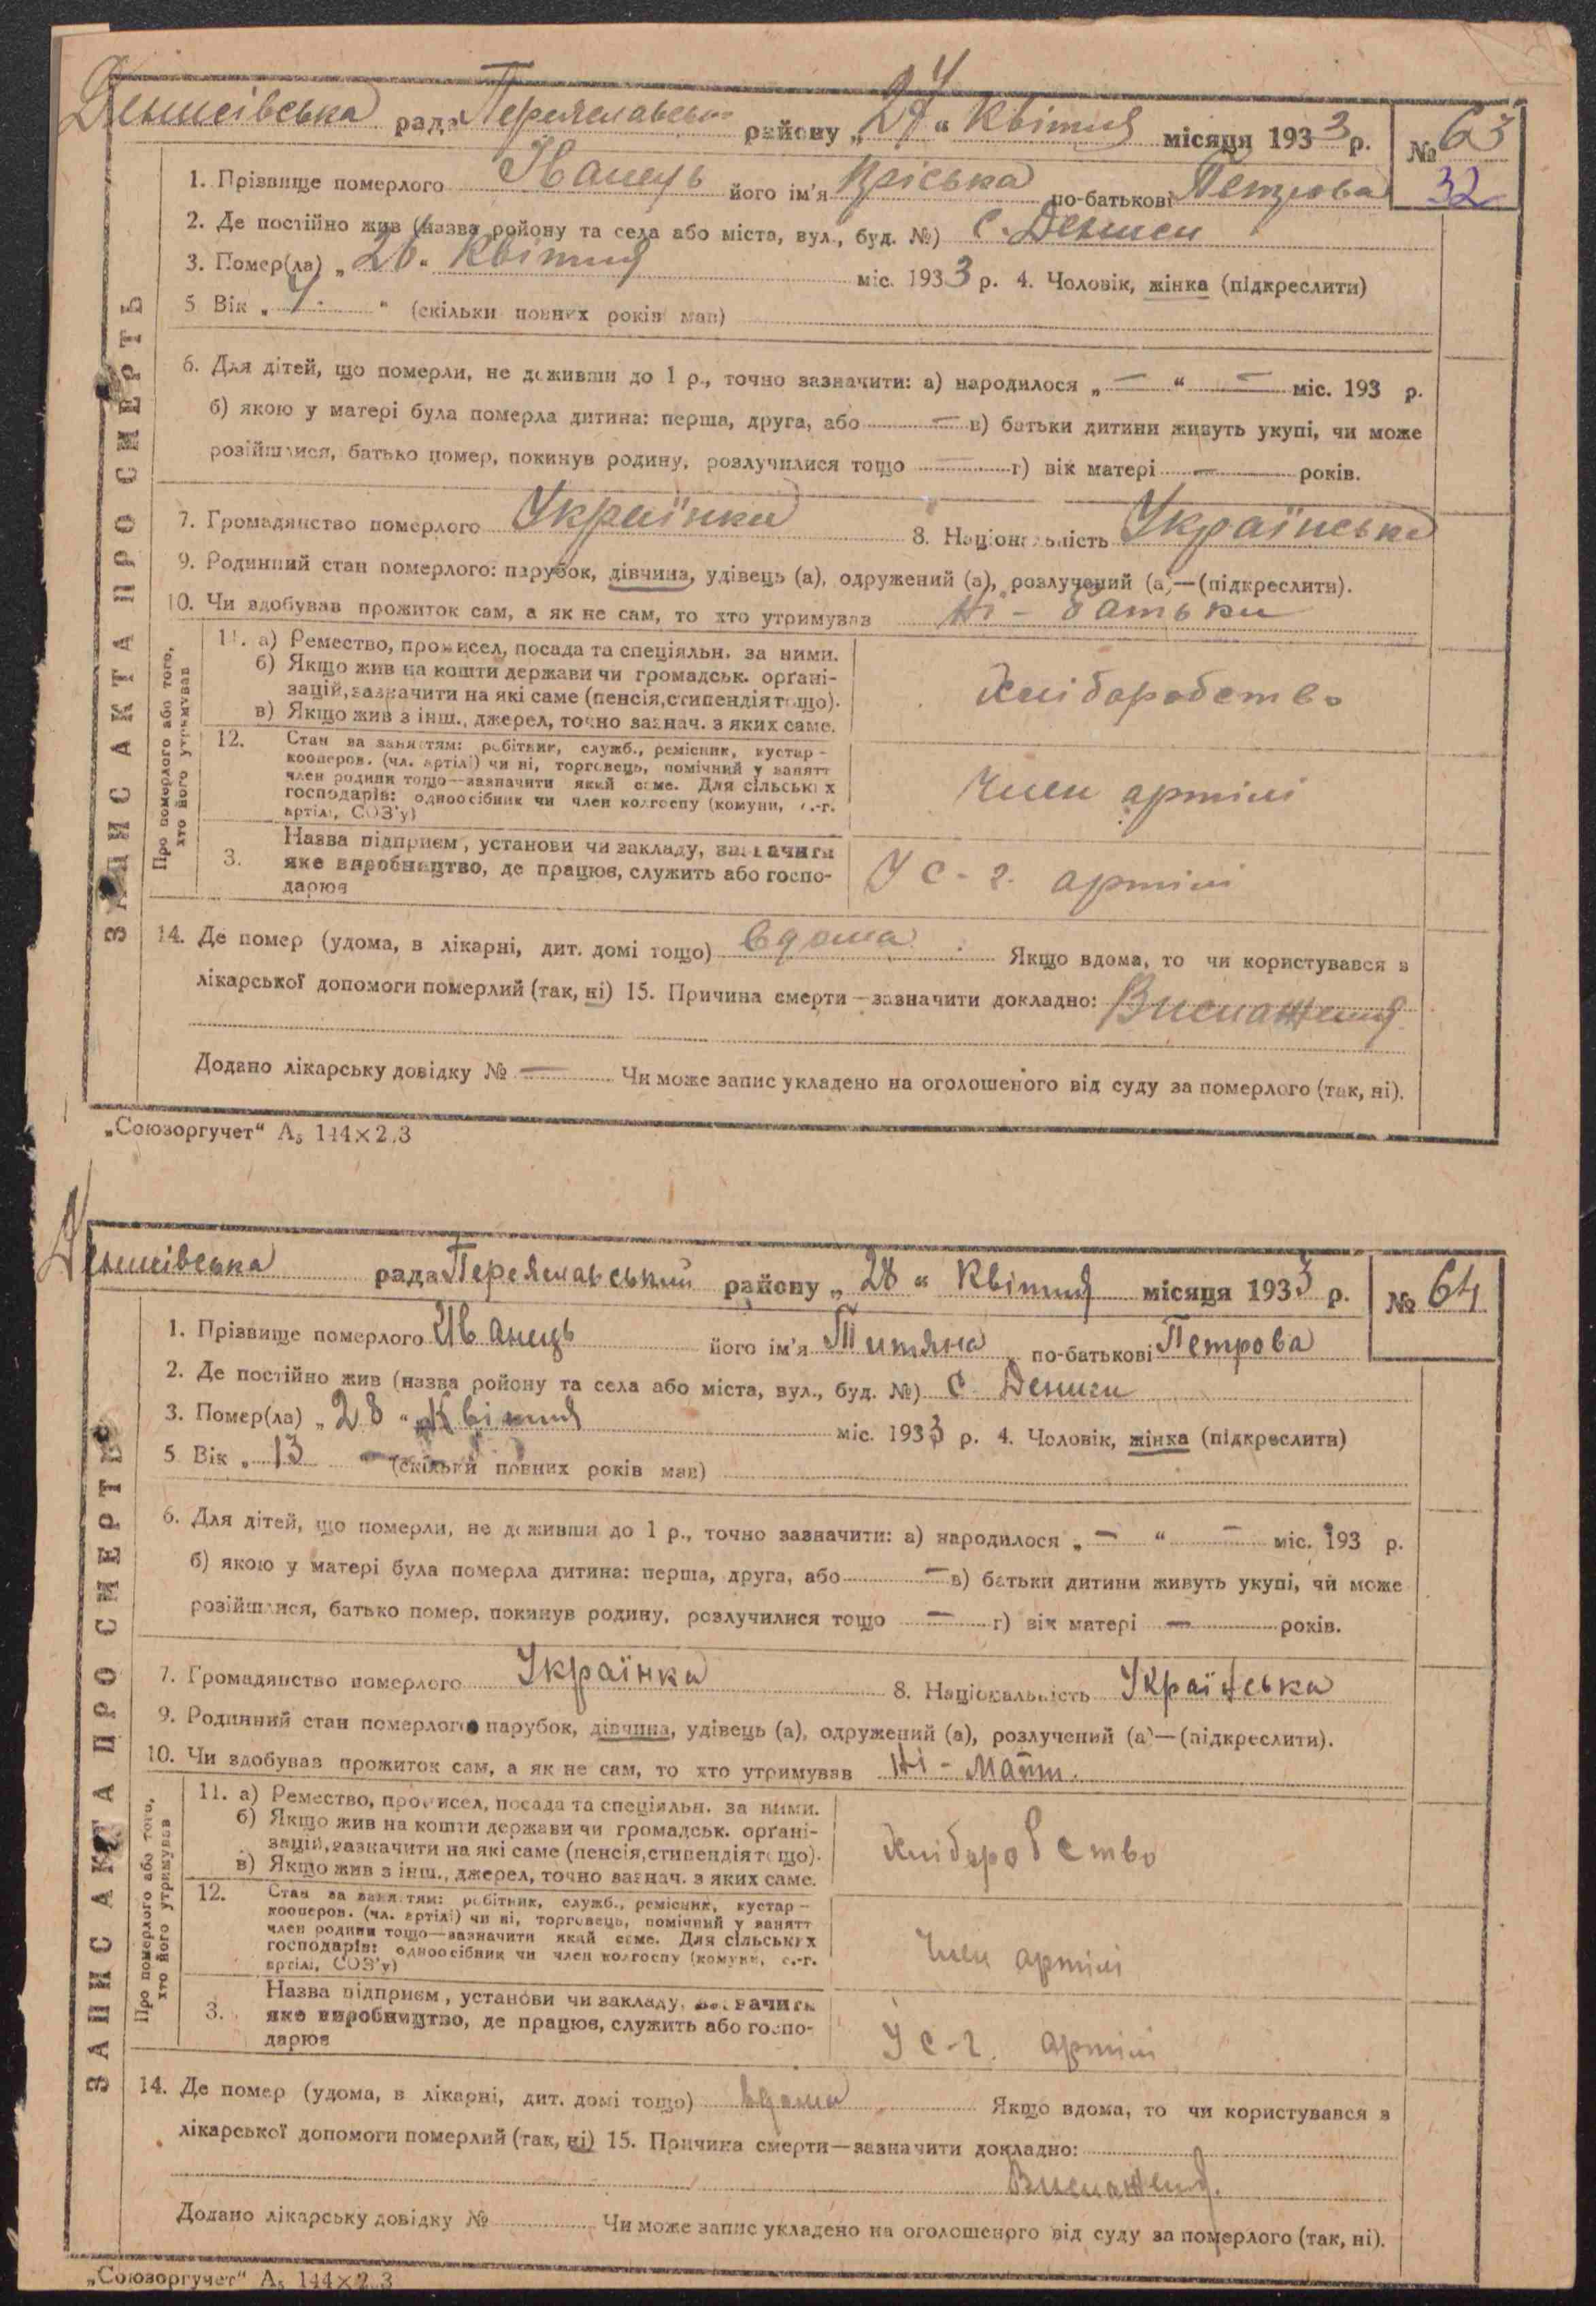 Денисівська рада Переяславськ району „27“ Квітня місяця 1933 р. № 63
32
1. Прізвище померлого його ім'я Пріська по-батькові Петрова
2. Де постійно жив (назва ройону та села або міста, вул., буд. №) с. Дениси
3. Помер(ла) „26“ Квітня міс. 1933 р. 4. Чоловік, жінка (підкреслити)
5 Вік „ “ (скільки повних років мав)
6. Для дітей, що померли, не доживши до 1 р., точно зазначити: а) народилося „—“ — міс. 193 р.
б) якою у матері була померла дитина: перша, друга, або — в) батьки дитини живуть укупі, чи може
розійшлися, батько помер, покинув родину, розлучилися тощо — г) вік матері — років.
7. Громадянство померлого Українка 8. Національність Українська
9. Родинний стан померлого: парубок, дівчина, удівець (а), одружений (а), розлучений (а)—(підкреслити).
10. Чи здобував прожиток сам, а як не сам, то хто утримував Ні - батьки
11. а) Ремество, промисел, посада та спеціяльн. за ними.
б) Якщо жив на кошти держави чи громадськ. орґані-
зацій, зазначити на які саме (пенсія, стипендія тощо).
в) Якщо жив з інш., джерел, точно зазнач. з яких саме.
Хліборобство
12. Стан за заняттям: робітник, служб., ремісник, кустар -
кооперов. (чл. артілі) чи ні, торговець, помічний у занятт
член родини тощо—зазначити який саме. Для сільських
господарів: одноосібник чи член колгоспу (комуни, с.-г.
артілі, СОЗ'у)
Член артілі
3. Назва підприєм, установи чи закладу, зазначити
яке виробництво, де працює, служить або госпо-
дарює
У с-г. артілі
14. Де помер (удома, в лікарні, дит. домі тощо) вдома Якщо вдома, то чи користувався з
лікарської допомоги померлий (так, ні) 15. Причина смерти—зазначити докладно: Виснаження
Додано лікарську довідку № — Чи може запис укладено на оголошеного від суду за померлого (так, ні).
ЗАПИС АКТА ПРО СМЕРТЬ
Про померлого або того,
хто його утримував
„Союзоргучет“ А₅ 144×2.3
Денисівська рада Переяславський району „28“ Квітня місяця 1933 р. № 64
1. Прізвище померлого Іванець його ім'я Титяна по-батькові Петрова
2. Де постійно жив (назва ройону та села або міста, вул., буд. №) с Дениси
3. Помер(ла) „28“ Квітня міс. 1933 р. 4. Чоловік, жінка (підкреслити)
5 Вік „13 “ (скільки повних років мав)
6. Для дітей, що померли, не доживши до 1 р., точно зазначити: а) народилося „—“ — міс. 193 р.
б) якою у матері була померла дитина: перша, друга, або — в) батьки дитини живуть укупі, чи може
розійшлися, батько помер, покинув родину, розлучилися тощо — г) вік матері — років.
7. Громадянство померлого Українка 8. Національність Українська
9. Родинний стан померлого парубок, дівчина, удівець (а), одружений (а), розлучений (а)—(підкреслити).
10. Чи здобував прожиток сам, а як не сам, то хто утримував Ні - Мати.
11. а) Ремество, промисел, посада та спеціяльн. за ними.
б) Якщо жив на кошти держави чи громадськ. орґані-
зацій, зазначити на які саме (пенсія, стипендія тощо).
в) Якщо жив з інш., джерел, точно зазнач. з яких саме.
Хліборобство
12. Стан за заняттям: робітник, служб., ремісник, кустар -
кооперов. (чл. артілі) чи ні, торговець, помічний у занятт
член родини тощо—зазначити який саме. Для сільських
господарів: одноосібник чи член колгоспу (комуни, с.-г.
артілі, СОЗ'у)
Член артілі
3. Назва підприєм, установи чи закладу, зазначить
яке виробництво, де працює, служить або госпо-
дарює
У с-г. артілі
14. Де помер (удома, в лікарні, дит. домі тощо) вдома Якщо вдома, то чи користувався з
лікарської допомоги померлий (так, ні) 15. Причина смерти—зазначити докладно:
Виснаження.
Додано лікарську довідку № Чи може запис укладено на оголошеного від суду за померлого (так, ні).
ЗАПИС АКТА ПРО СМЕРТЬ
Про померлого або того,
хто його утримував
„Союзоргучет“ А₅ 144×2.3